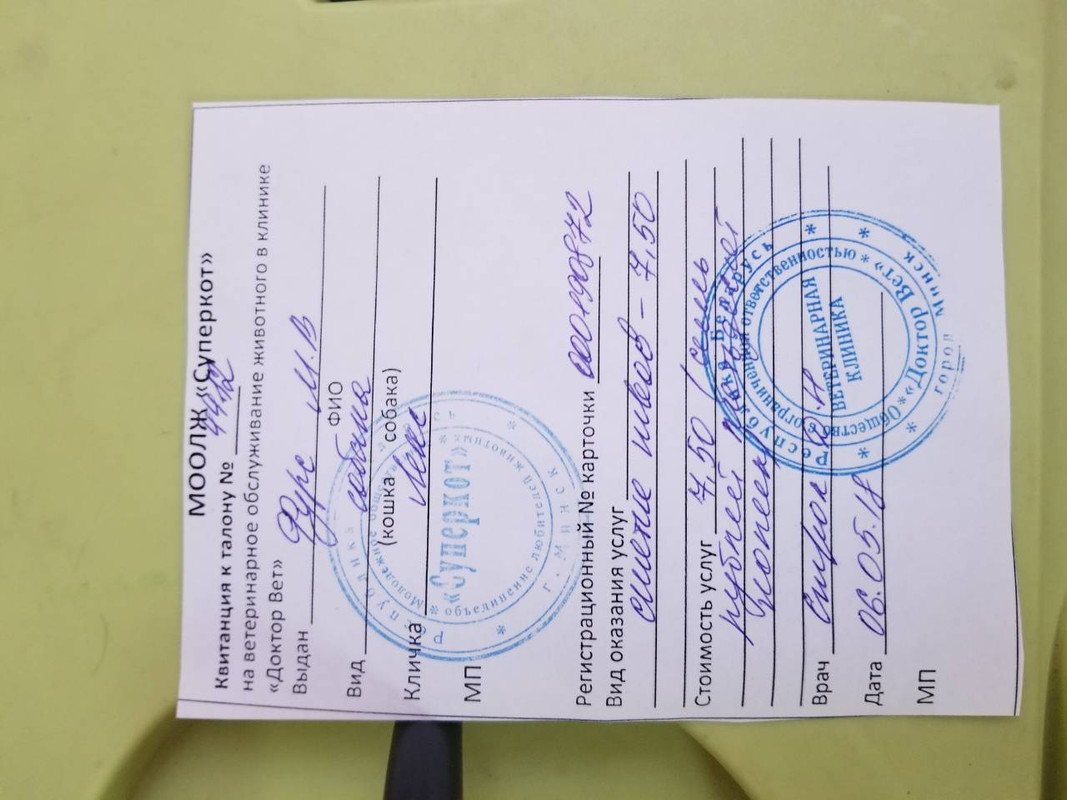 МООЛЖ «Суперкот»
Квитанция к талону №
на ветеринарное обслуживание животного в клинике
«Доктор Вет»
Выдан Фурс И.В
ФИО
Вид собака
(кошка, собака)
Кличка
МП
Республика Беларусь
Молодежное общественное
объединение любителей животных
«Суперкот»
г. Минск
Регистрационный № карточки 000190872
Вид оказания услуг
снятие швов – 7,50
Стоимость услуг 7,50 (семь
рублей пятьдесят
копеек
Врач
Дата 06.05.18
МП
Республика Беларусь
Общество с ограниченной ответственностью
«Доктор Вет»
ВЕТЕРИНАРНАЯ
КЛИНИКА
город Минск